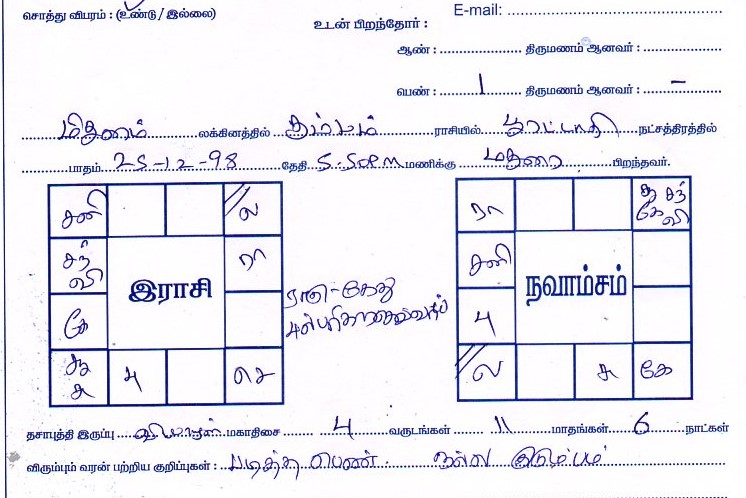 சொத்து விபரம் : (உண்டு / இல்லை)
E-mail:
உடன் பிறந்தோர் :
ஆண் : திருமணம் ஆனவர் :
பெண் : 1 திருமணம் ஆனவர் : –
மிதுனம் லக்கினத்தில் கும்பம் ராசியில் பூரட்டாதி நட்சத்திரத்தில்
பாதம் 25-12-98 தேதி 5.50PM மணிக்கு மதுரை பிறந்தவர்.
சனி ல
சந் வி ரா
இராசி
கே
சூ சு பு செ
ராகு-கேது
ரா சூ சந் கே வி
சனி
நவாம்சம்
பு
ல சு கே
தசாபுத்தி இருப்பு வியாழன் மகாதிசை 4 வருடங்கள் 11 மாதங்கள் 6 நாட்கள்
விரும்பும் வரன் பற்றிய குறிப்புகள் : படித்த பெண் நல்ல குடும்பம்